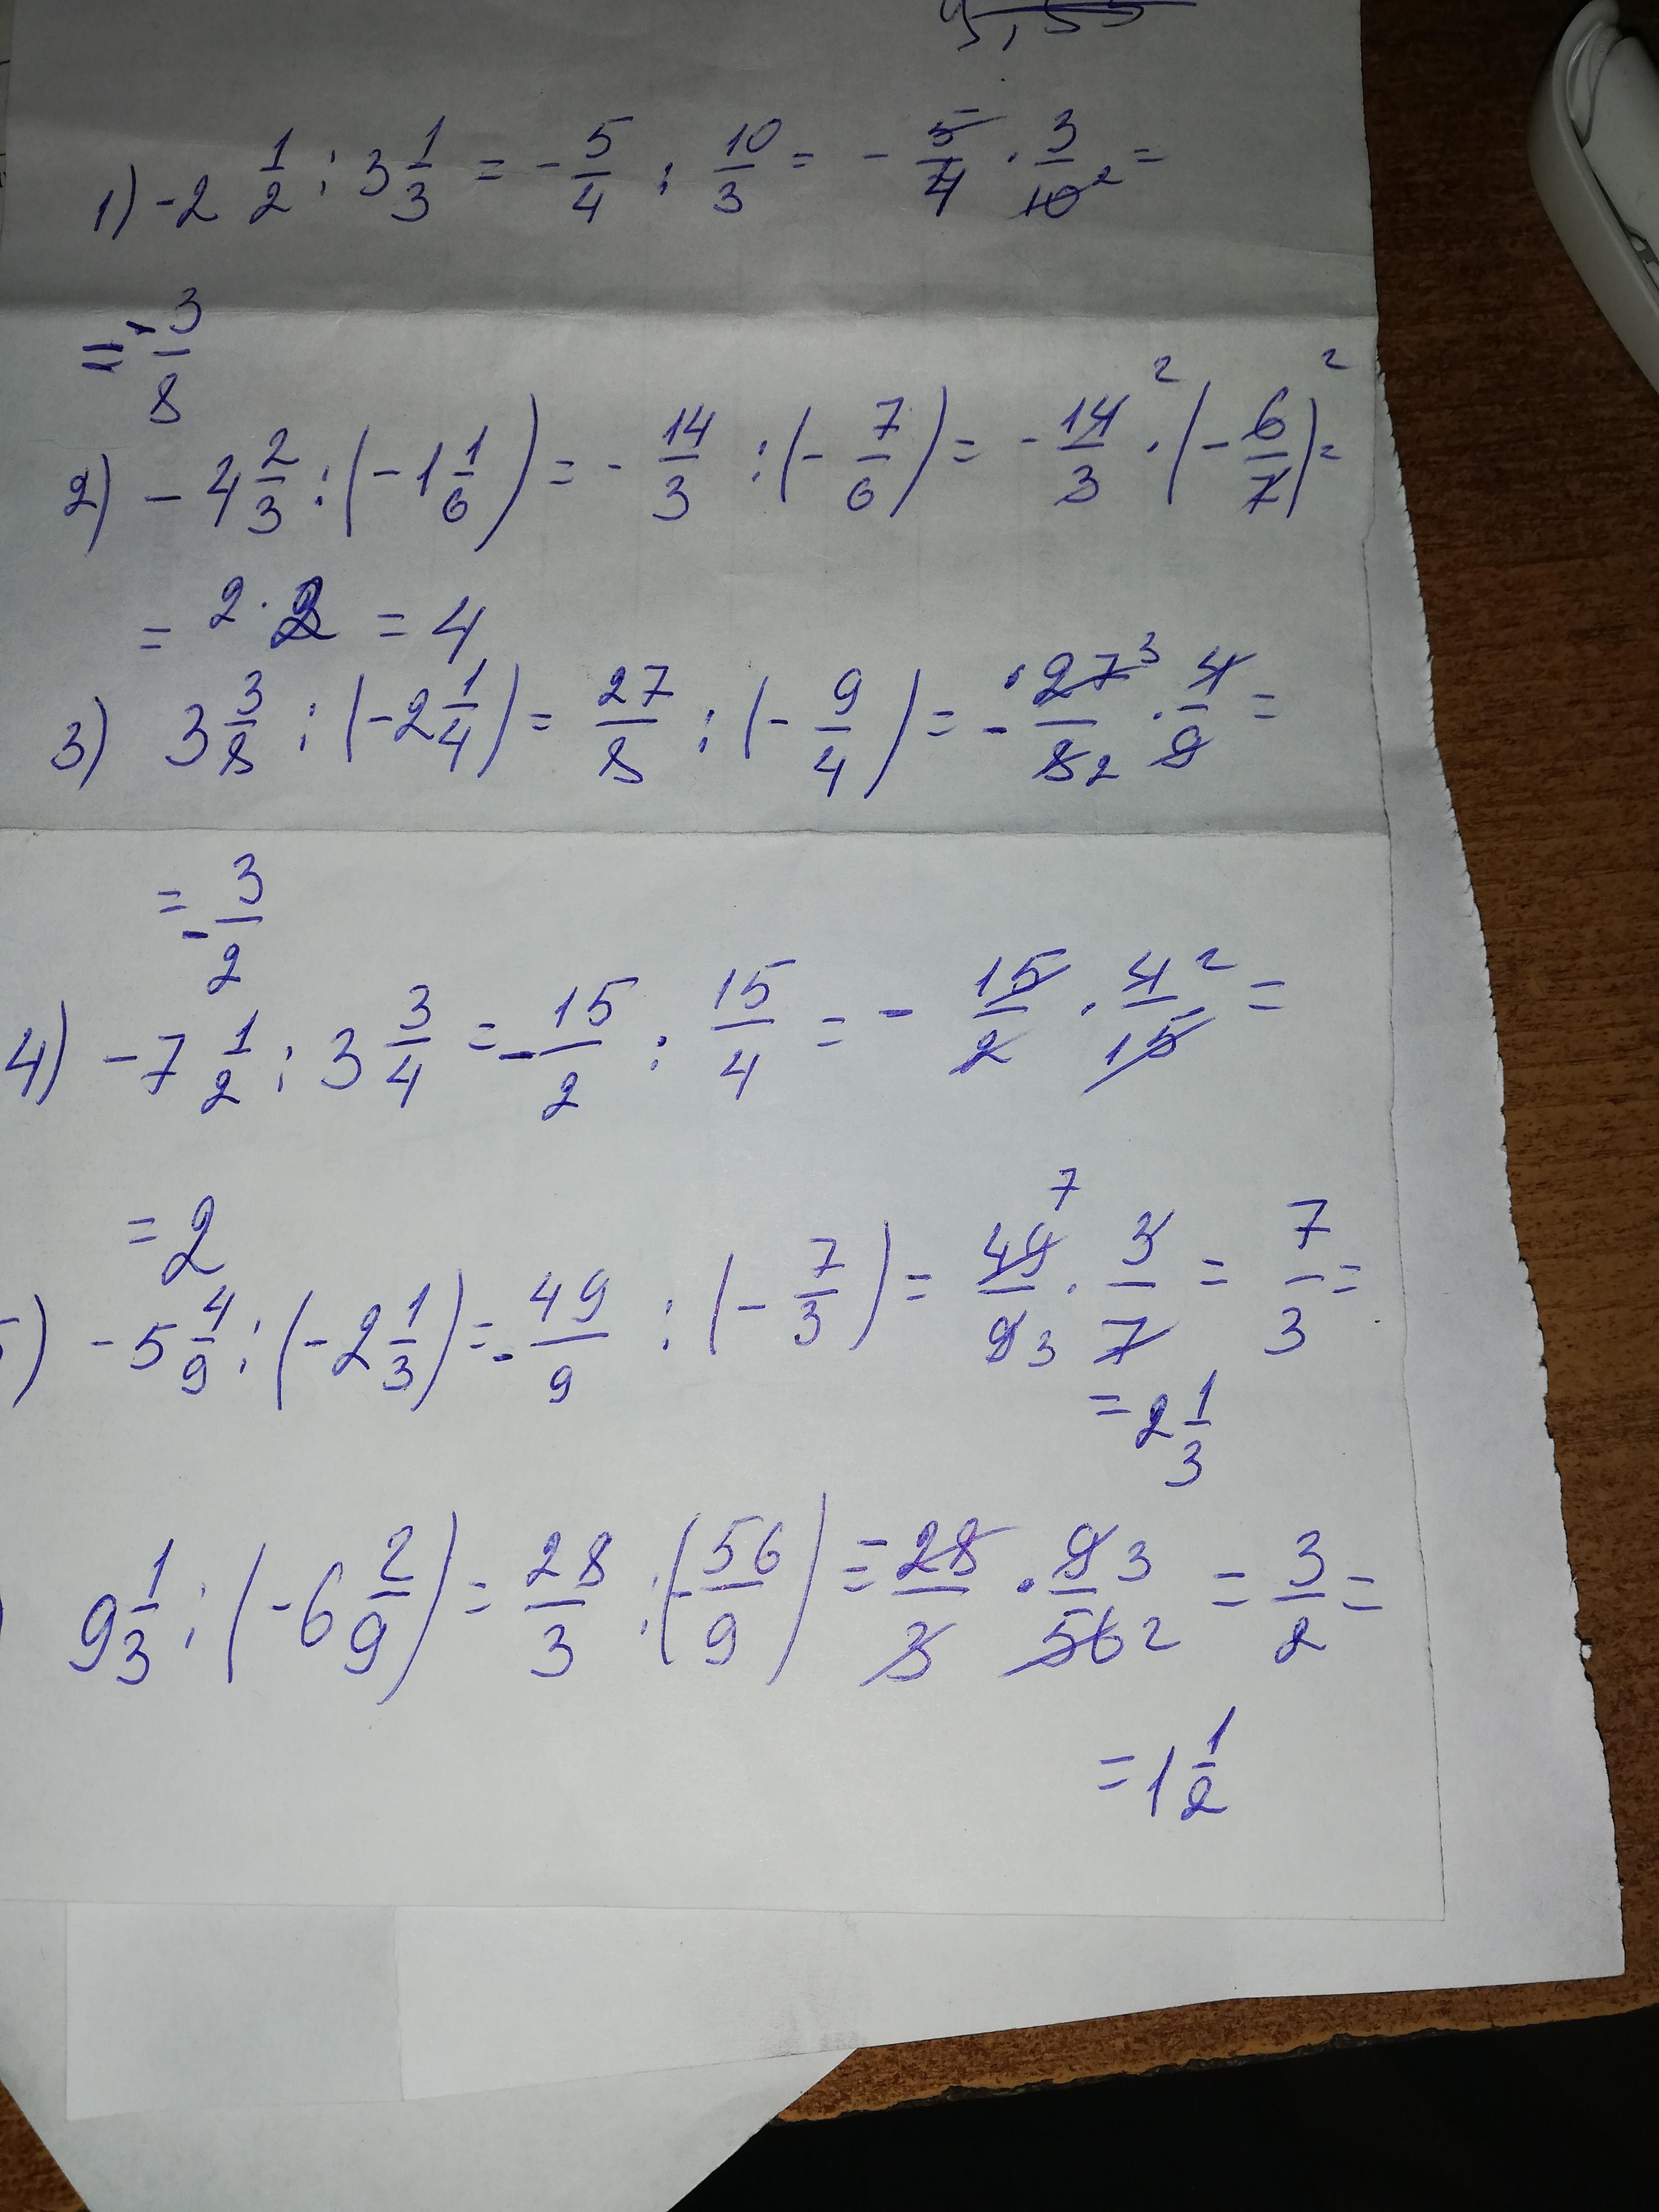 1) -2 1/2 : 3 1/3 = - 5/4 : 10/3 = - 5/4 · 3/10 2 =
= - 3/8
2) - 4 2/3 : (- 1 1/6) = - 14/3 : (- 7/6) = - 14/3 2 · (- 6/7) 2 =
= 2 · 2 = 4
3) 3 3/8 : (- 2 1/4) = 27/8 : (- 9/4) = - 27 3/8 2 · 4/9 =
= - 3/2
4) - 7 1/2 : 3 3/4 = - 15/2 : 15/4 = - 15/2 · 4 2/15 =
= 2
5) - 5 4/9 : (- 2 1/3) = - 49/9 : (- 7/3) = 49 7/9 3 · 3/7 = 7/3 =
= 2 1/3
) 9 1/3 : (- 6 2/9) = 28/3 : (- 56/9) = 28/3 · 9 3/56 2 = 3/2 =
= 1 1/2